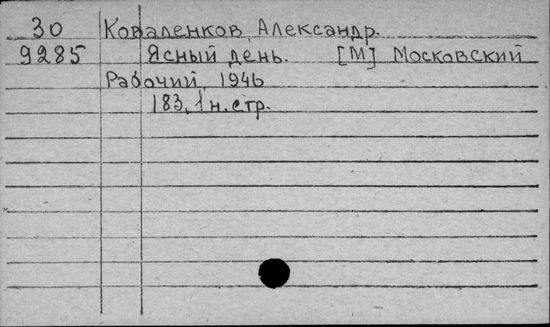 30 Коваленков, Александр.
9285 Ясный день. [М] Московский
Рабочий, 1946
183, 1 н. стр.